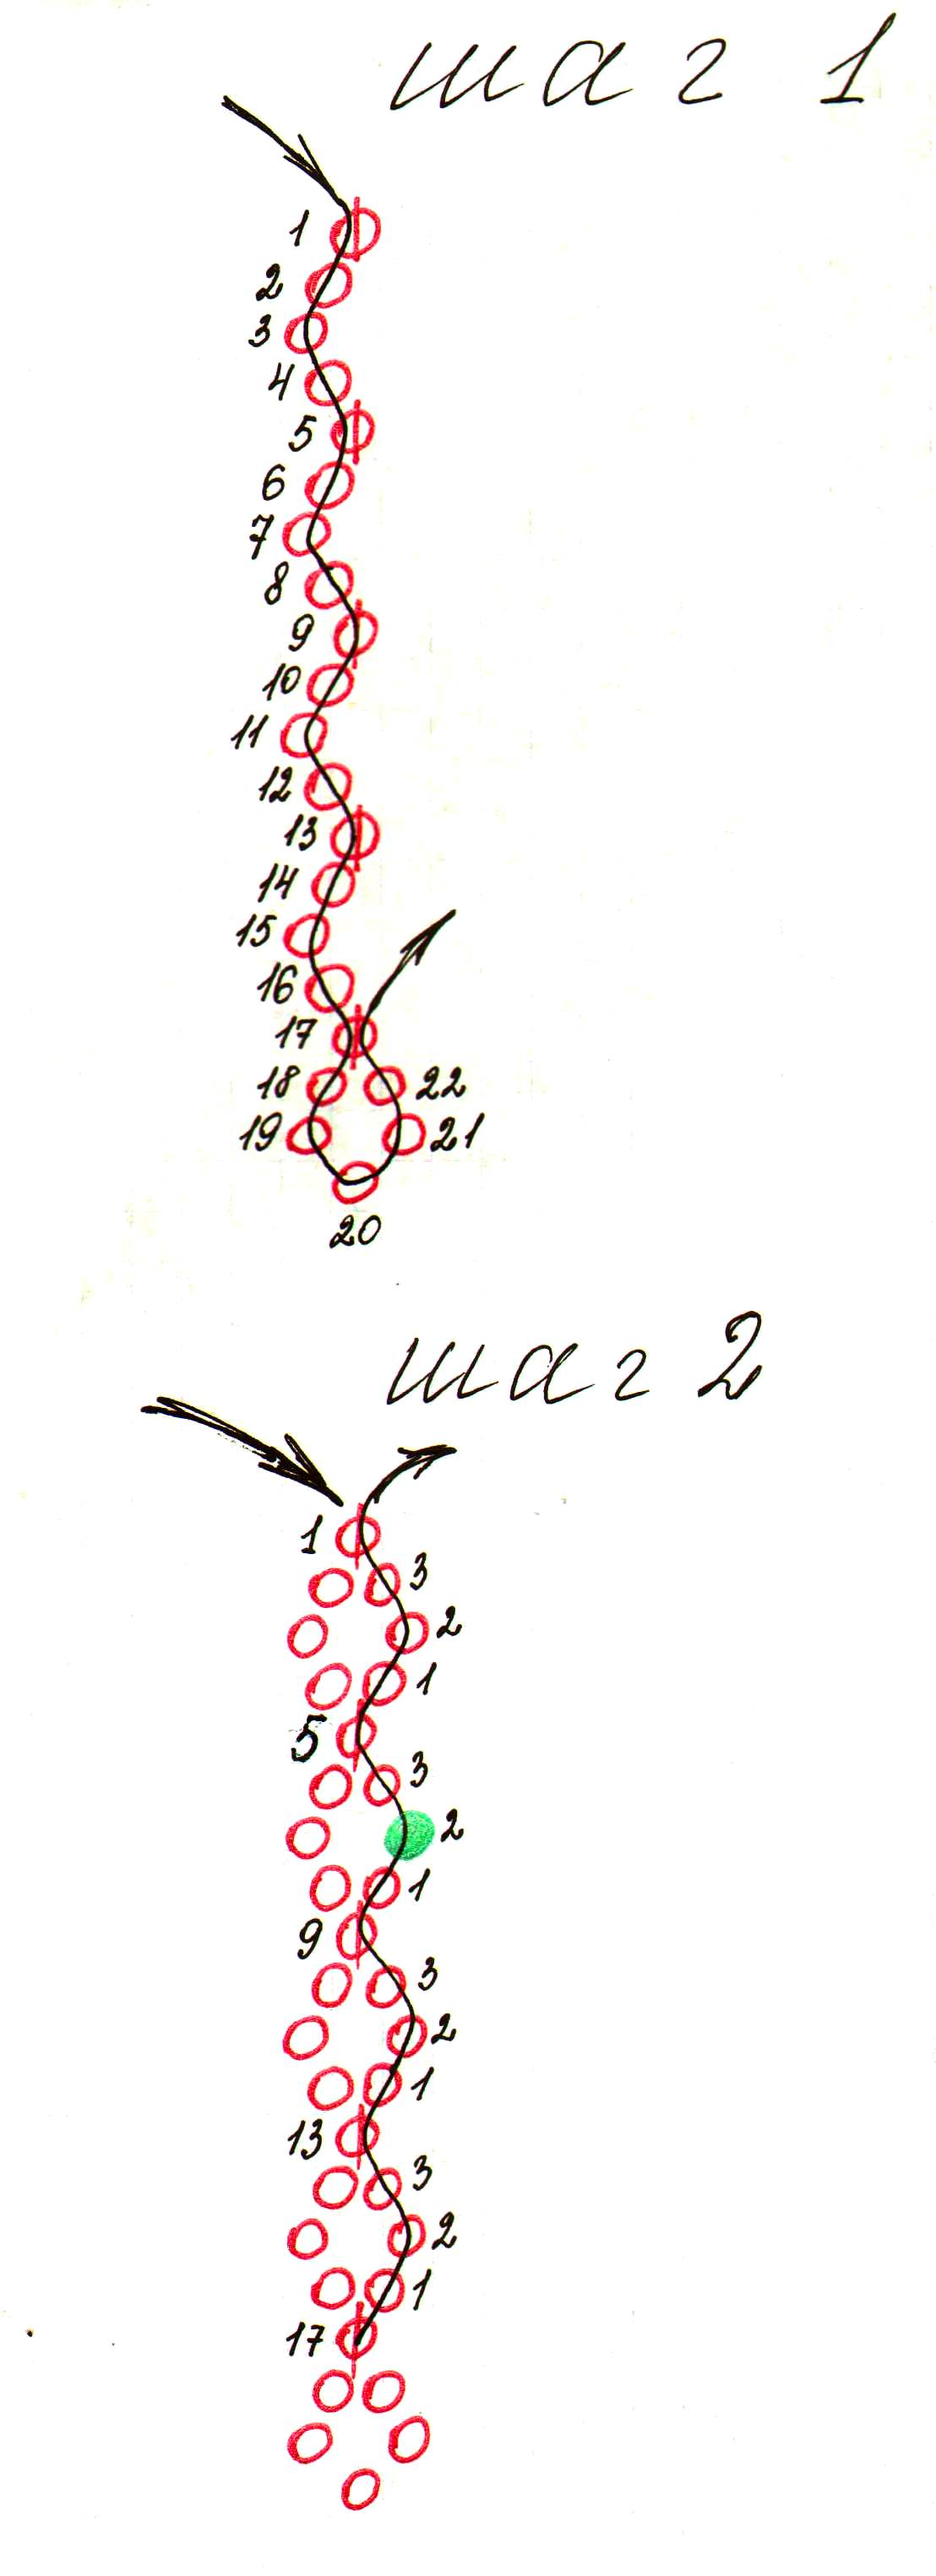 шаг 1
1
2
3
4
5
6
7
8
9
10
11
12
13
14
15
16
17
18 22
19 21
20
шаг 2
1
3
2
1
5
3
2
1
9
3
2
1
13
3
2
1
17